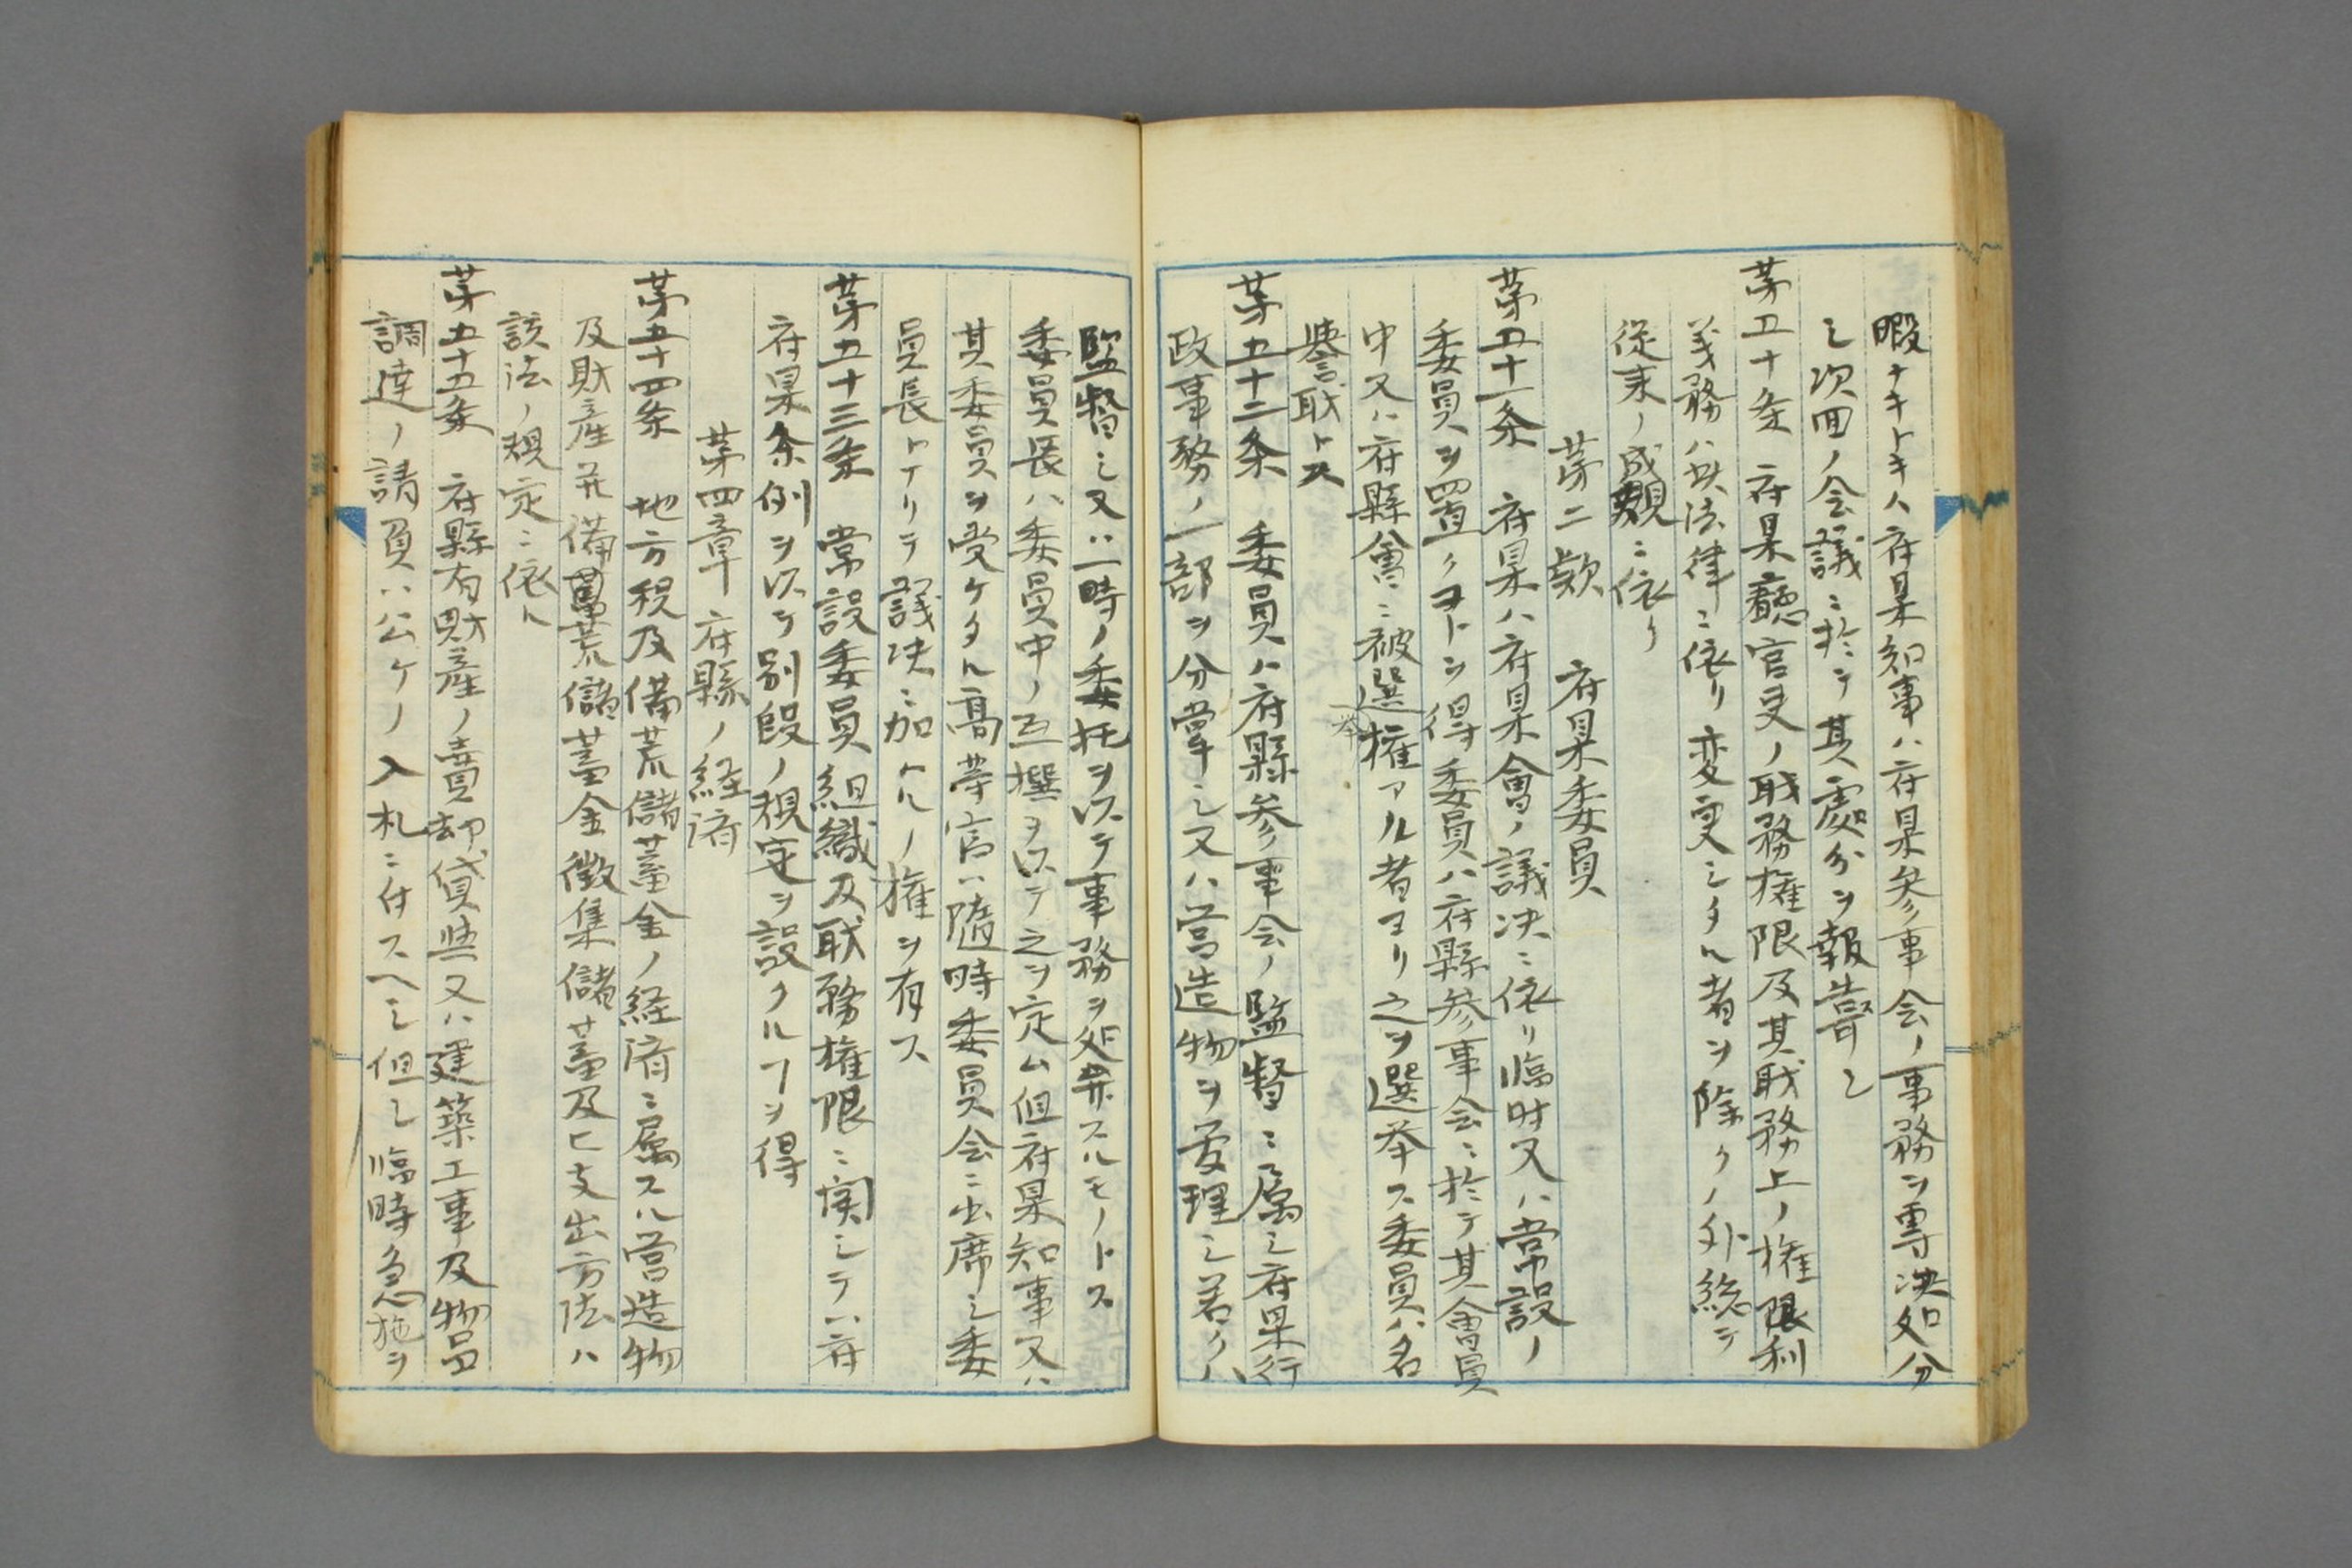 暇ナキトキハ府県知事ハ府県参事会ノ事務ヲ専決処分
シ次回ノ会議ニ於テ其處分ヲ報告スヘシ
第五十条　府県廳官吏ノ職務権限及其職務上ノ権限利
義務ハ此法律ニ依リ変更シタル者ヲ除クノ外総テ
従来ノ成規ニ依リ
第二款　府県委員
第五十一条　府県ハ府県會ノ議决ニ依リ臨時又ハ常設ノ
委員ヲ置クコトヲ得委員ハ府縣参事会ニ於テ其會員
中又ハ府縣會ニ被選挙権アル者ヨリ之ヲ選挙ス委員ハ名
譽職トス
第五十二条　委員ハ府縣参事会ノ監督ニ属シ府県行
政事務ノ一部ヲ分掌シ又ハ営造物ヲ管理シ若クハ
監督シ又ハ一時ノ委托ヲ以テ事務ヲ処弁スルモノトス
委員長ハ委員中ノ互撰ヲ以テ之ヲ定ム但府県知事又ハ
其委員ヲ受ケタル高等官ハ随時委員会ニ出席シ委
員長トナリテ議决ニ加ハルノ権ヲ有ス
第五十三条　常設委員組織及職務権限ニ関シテハ府
府県条例ヲ以テ別段ノ規定ヲ設クルヿヲ得
第四章　府縣ノ経済
第五十四条　地方税及備荒儲蓄金ノ経済ニ属スル営造物
及財産並備荒儲蓄金徴集儲蓄及ヒ支出方法ハ
該法ノ規定ニ依ル
第五十五条　府縣有財産ノ賣却貸與又ハ建築工事及物品
調達ノ請負ハ公ケノ入札ニ付スヘシ但シ臨時急施ヲ